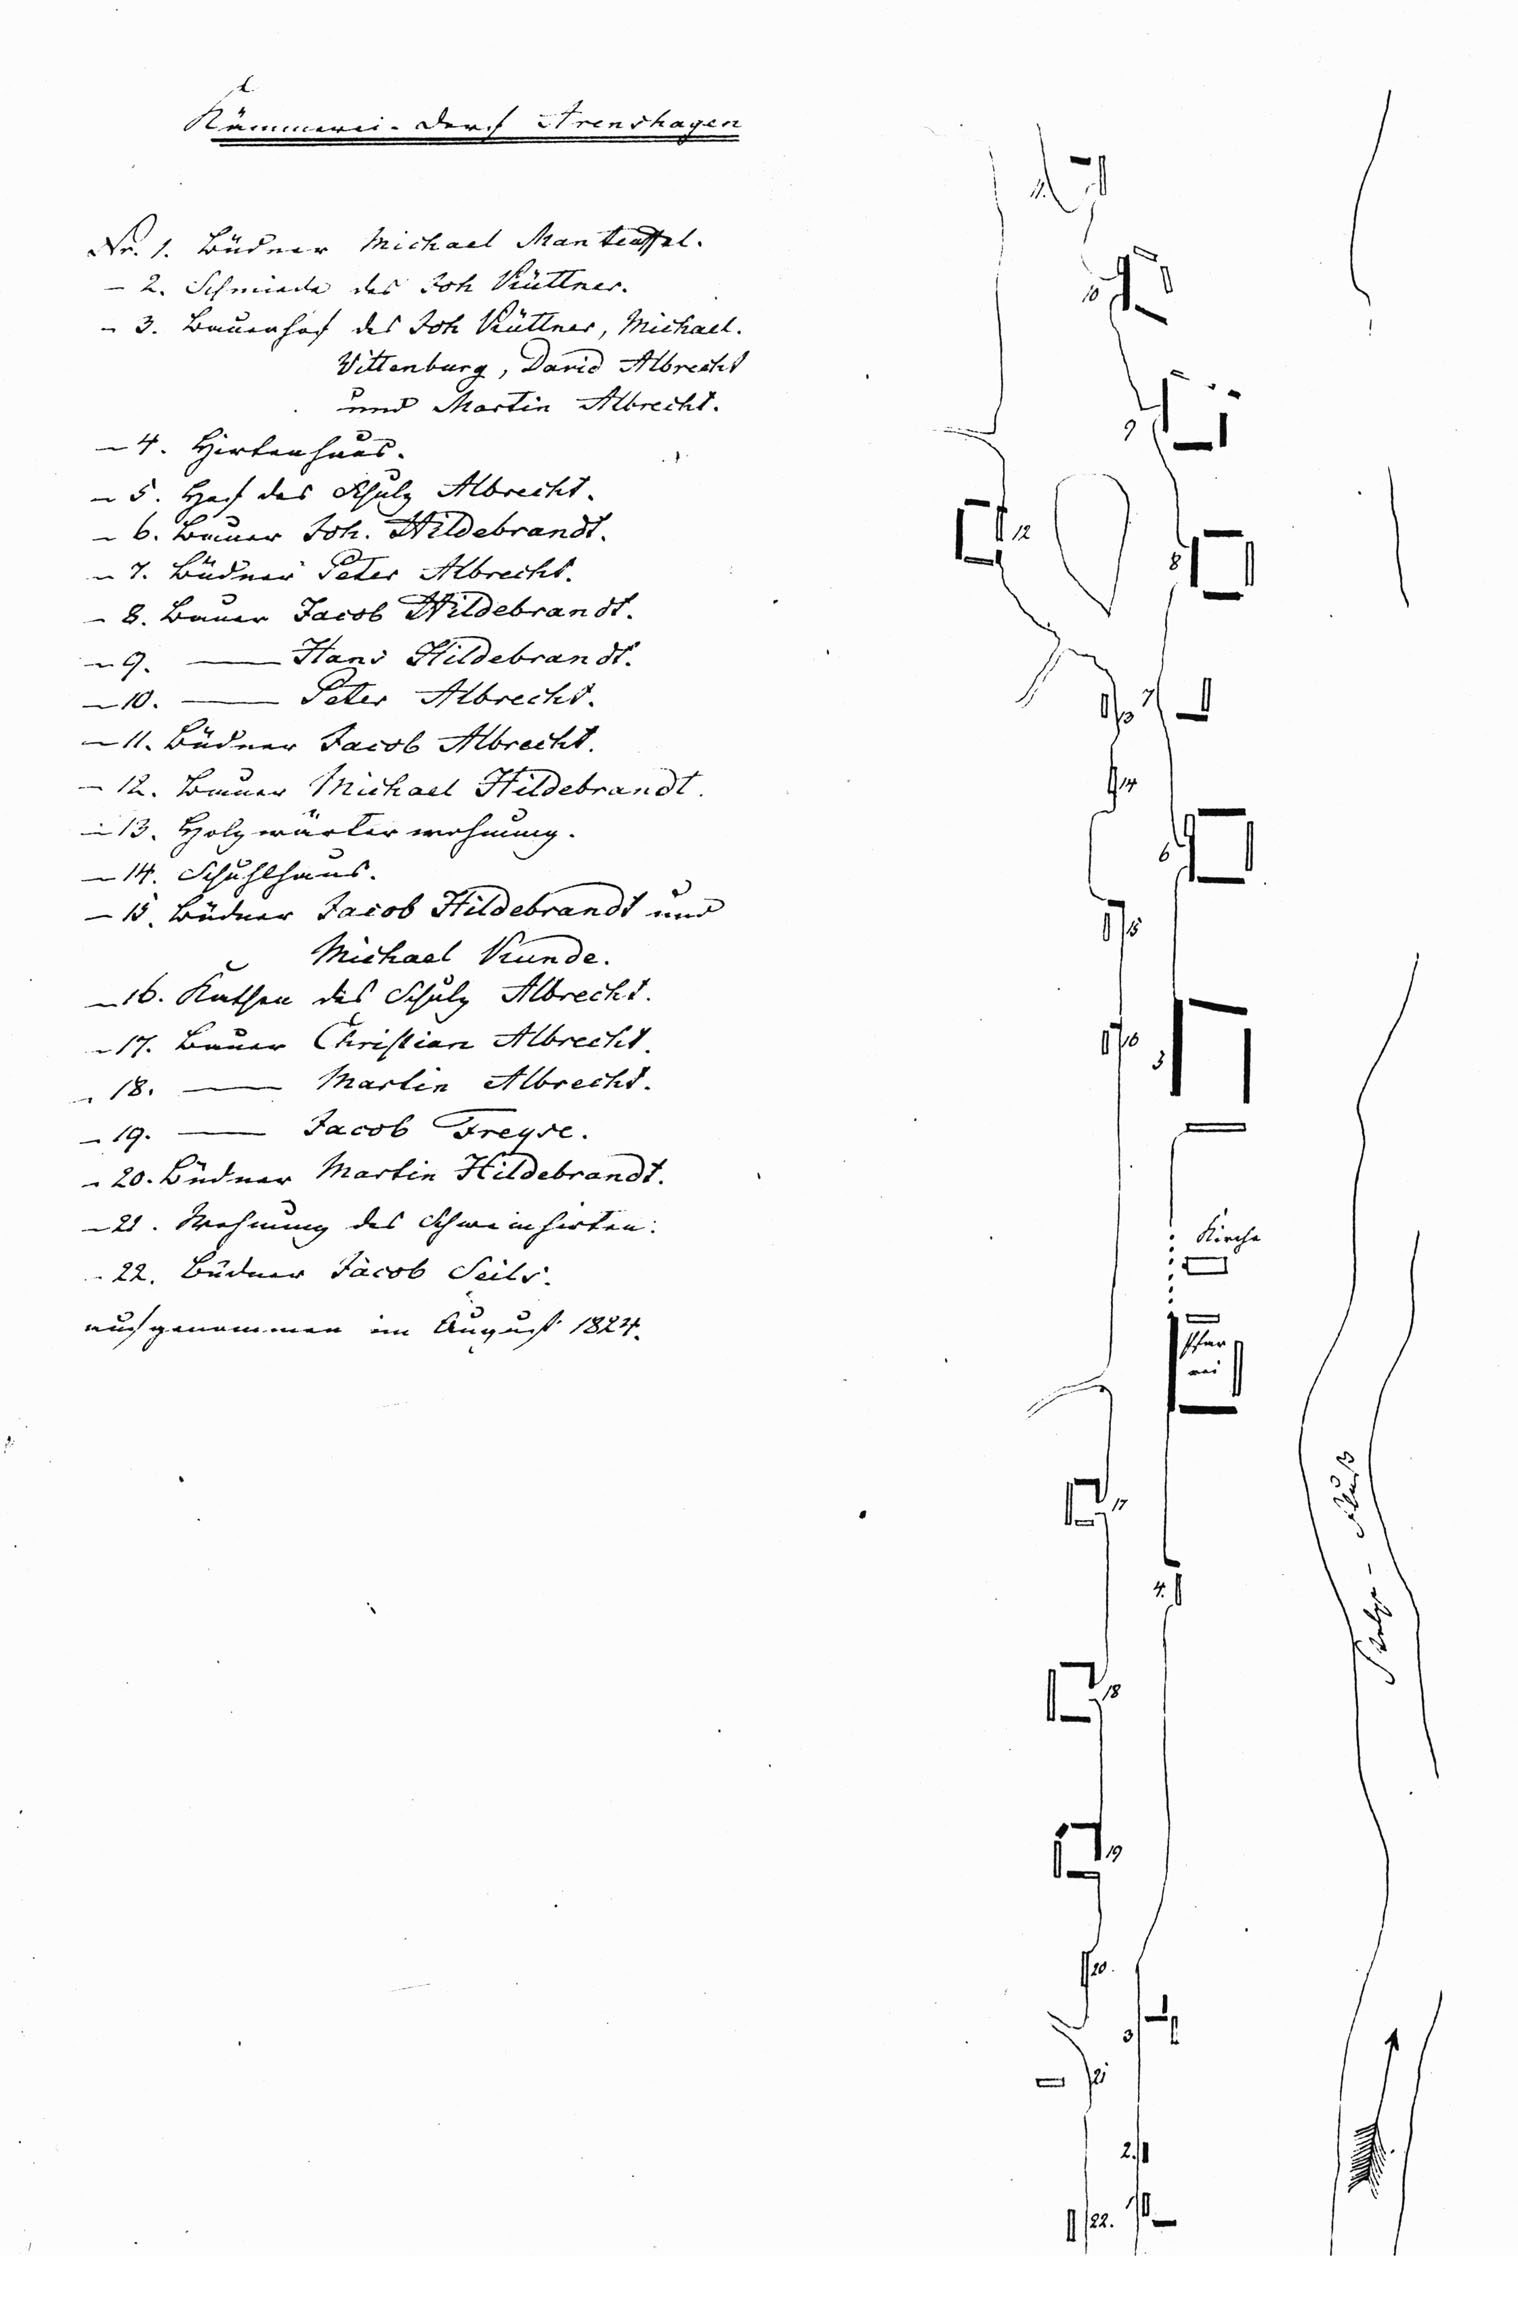 Kämmerei-Dorf Arenshagen
Nr. 1. Büdner Michael Manteuffel.
— 2. Schmiede des Joh Küttner.
— 3. Bauerhof des Joh Küttner, Michael.
Vittenburg, David Albrecht
und Martin Albrecht.
— 4. Hirtenhaus.
— 5. Hof des Schulz Albrecht.
— 6. Bauer Joh. Hildebrandt.
— 7. Büdner Peter Albrecht.
— 8. Bauer Jacob Hildebrandt.
— 9. —— Hans Hildebrandt.
— 10. —— Peter Albrecht.
— 11. Büdner Jacob Albrecht.
— 12. Bauer Michael Hildebrandt.
— 13. Holzwärterwohnung.
— 14. Schuhlhaus.
— 15. Büdner Jacob Hildebrandt und
Michael Kunde.
— 16. Kathen des Schulz Albrecht.
— 17. Bauer Christian Albrecht.
— 18. —— Martin Albrecht.
— 19. —— Jacob Freyse.
— 20. Büdner Martin Hildebrandt.
— 21. Wohnung des Schweinhirten.
— 22. Büdner Jacob Seils.
aufgenommen im August 1824.
11.
10
9
12
8
13
7
14
6
15
16
5
Kirche
Pfar
rei
17
4.
Stolpe-Fluß
18
19
20.
3
21
2.
1
22.